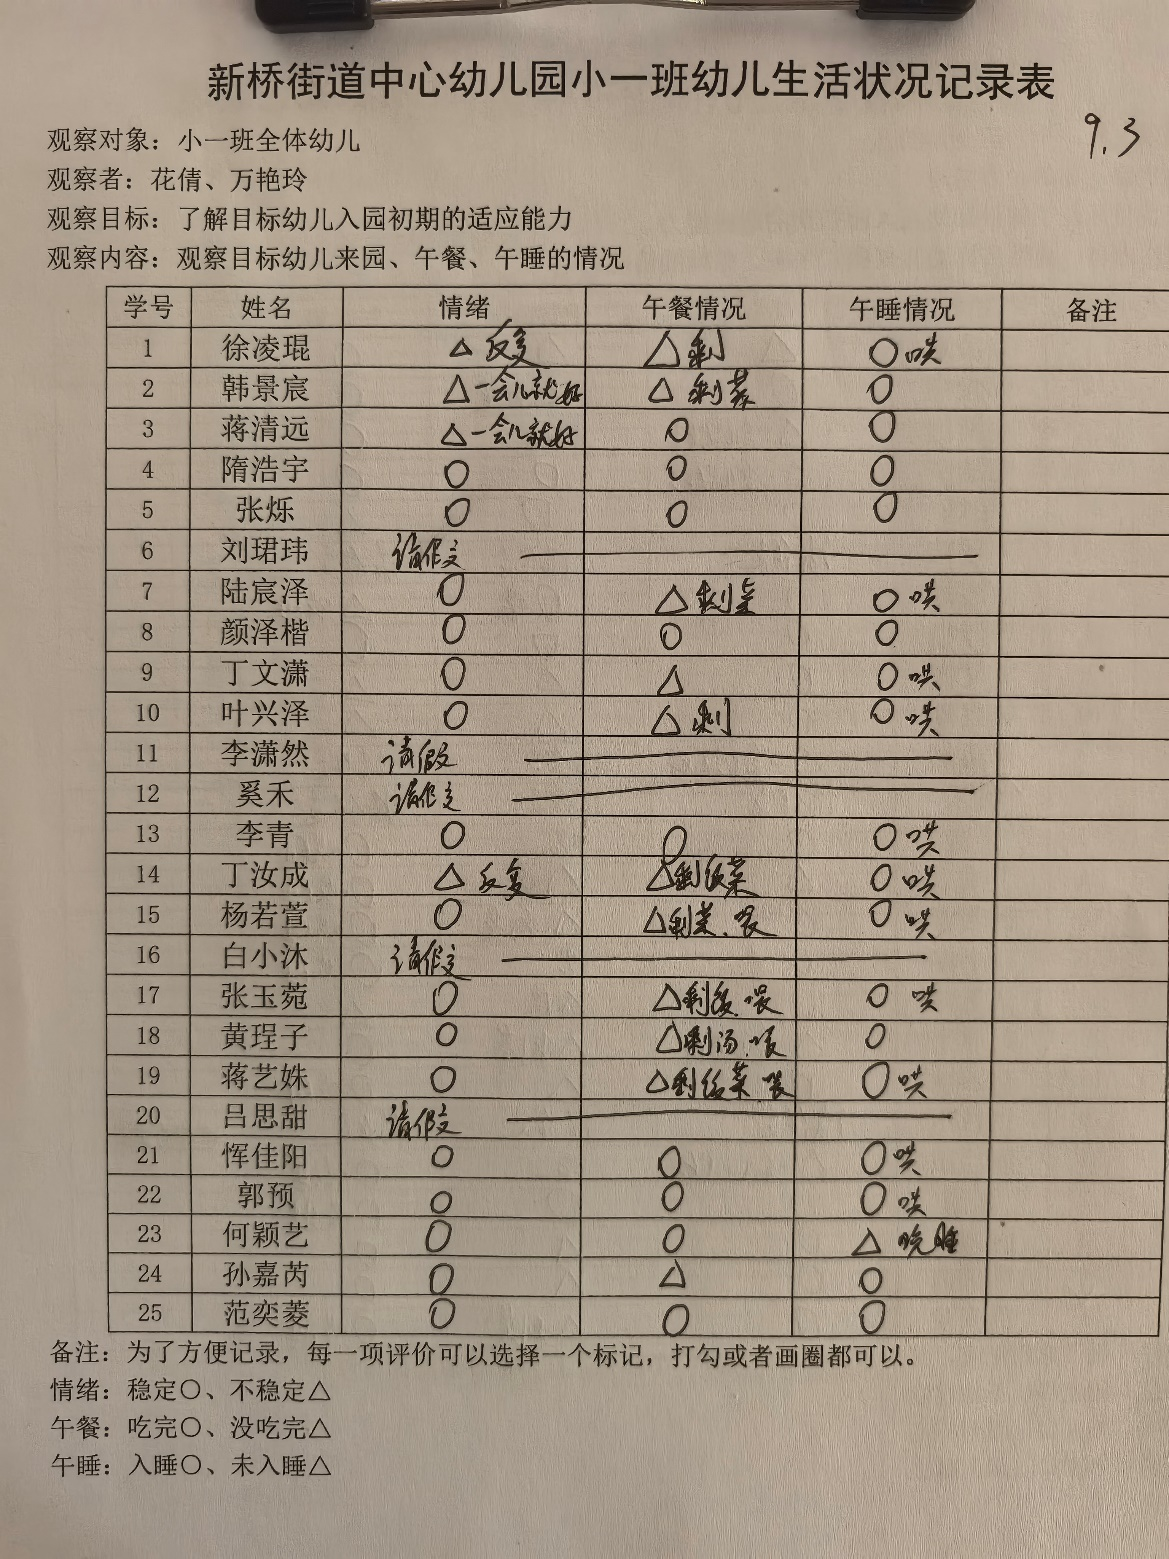 新桥街道中心幼儿园小一班幼儿生活状况记录表
9.3
观察对象：小一班全体幼儿
观察者：花倩、万艳玲
观察目标：了解目标幼儿入园初期的适应能力
观察内容：观察目标幼儿来园、午餐、午睡的情况
学号 姓名 情绪 午餐情况 午睡情况 备注
1 徐凌琨 △反复 △剩 ○哄
2 韩景宸 △一会儿就好 △剩菜 ○
3 蒋清远 △一会儿就好 ○ ○
4 隋浩宇 ○ ○ ○
5 张烁 ○ ○ ○
6 刘珺玮 请假
7 陆宸泽 ○ △剩菜 ○哄
8 颜泽楷 ○ ○ ○
9 丁文潇 ○ △ ○哄
10 叶兴泽 ○ △剩 ○哄
11 李潇然 请假
12 奚禾 请假
13 李青 ○ ○ ○哄
14 丁汝成 △反复 △剩饭菜 ○哄
15 杨若萱 ○ △剩菜、喂 ○哄
16 白小沐 请假
17 张玉菀 ○ △剩饭、喂 ○哄
18 黄珵子 ○ △剩汤、喂 ○
19 蒋艺姝 ○ △剩饭菜、喂 ○哄
20 吕思甜 请假
21 恽佳阳 ○ ○ ○哄
22 郭预 ○ ○ ○哄
23 何颖艺 ○ ○ △晚睡
24 孙嘉芮 ○ △ ○
25 范奕菱 ○ ○ ○
备注：为了方便记录，每一项评价可以选择一个标记，打勾或者画圈都可以。
情绪：稳定○、不稳定△
午餐：吃完○、没吃完△
午睡：入睡○、未入睡△